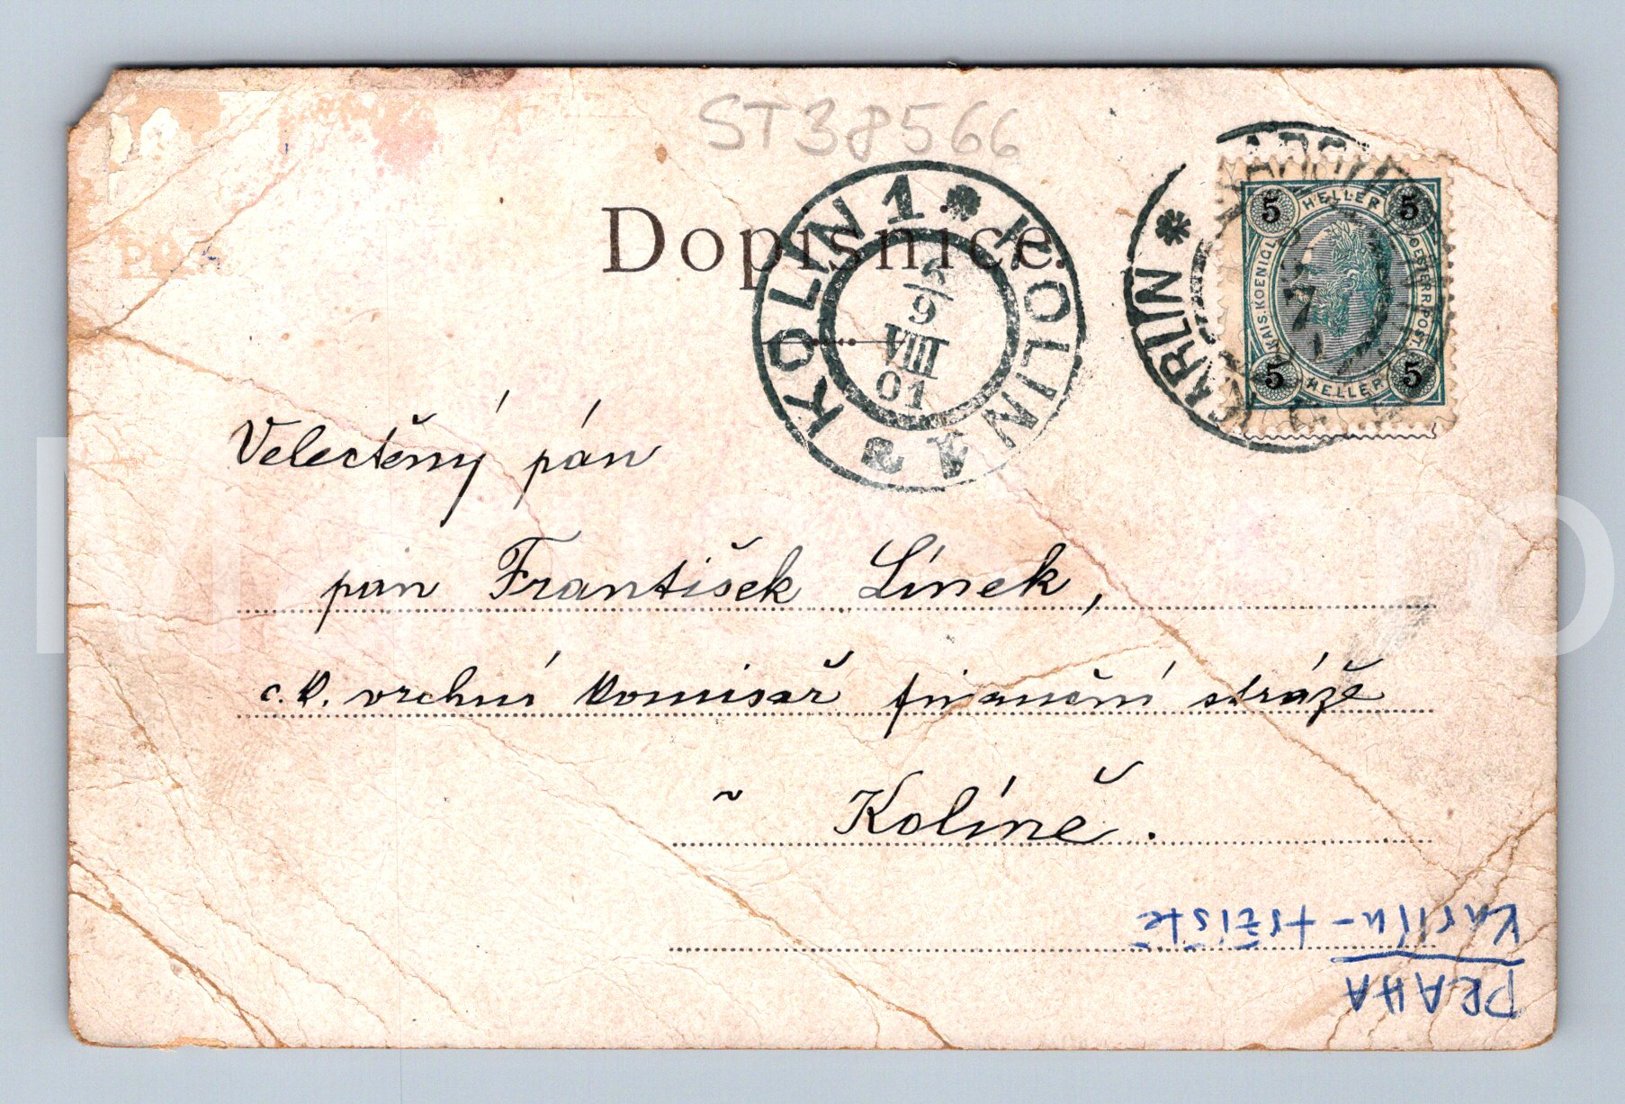 ST38566
Dopisnice.
KOLIN 1 * KOLIN 1
9
VIII
01
KARLIN *
7
5 HELLER 5
KAIS. KOENIGL. OESTERR. POST.
5 HELLER 5
Velectěný pán
pan František Línek,
c. k. vrchní komisař finanční stráže
v Kolíně.
PRAHA
Karlín - tržiště